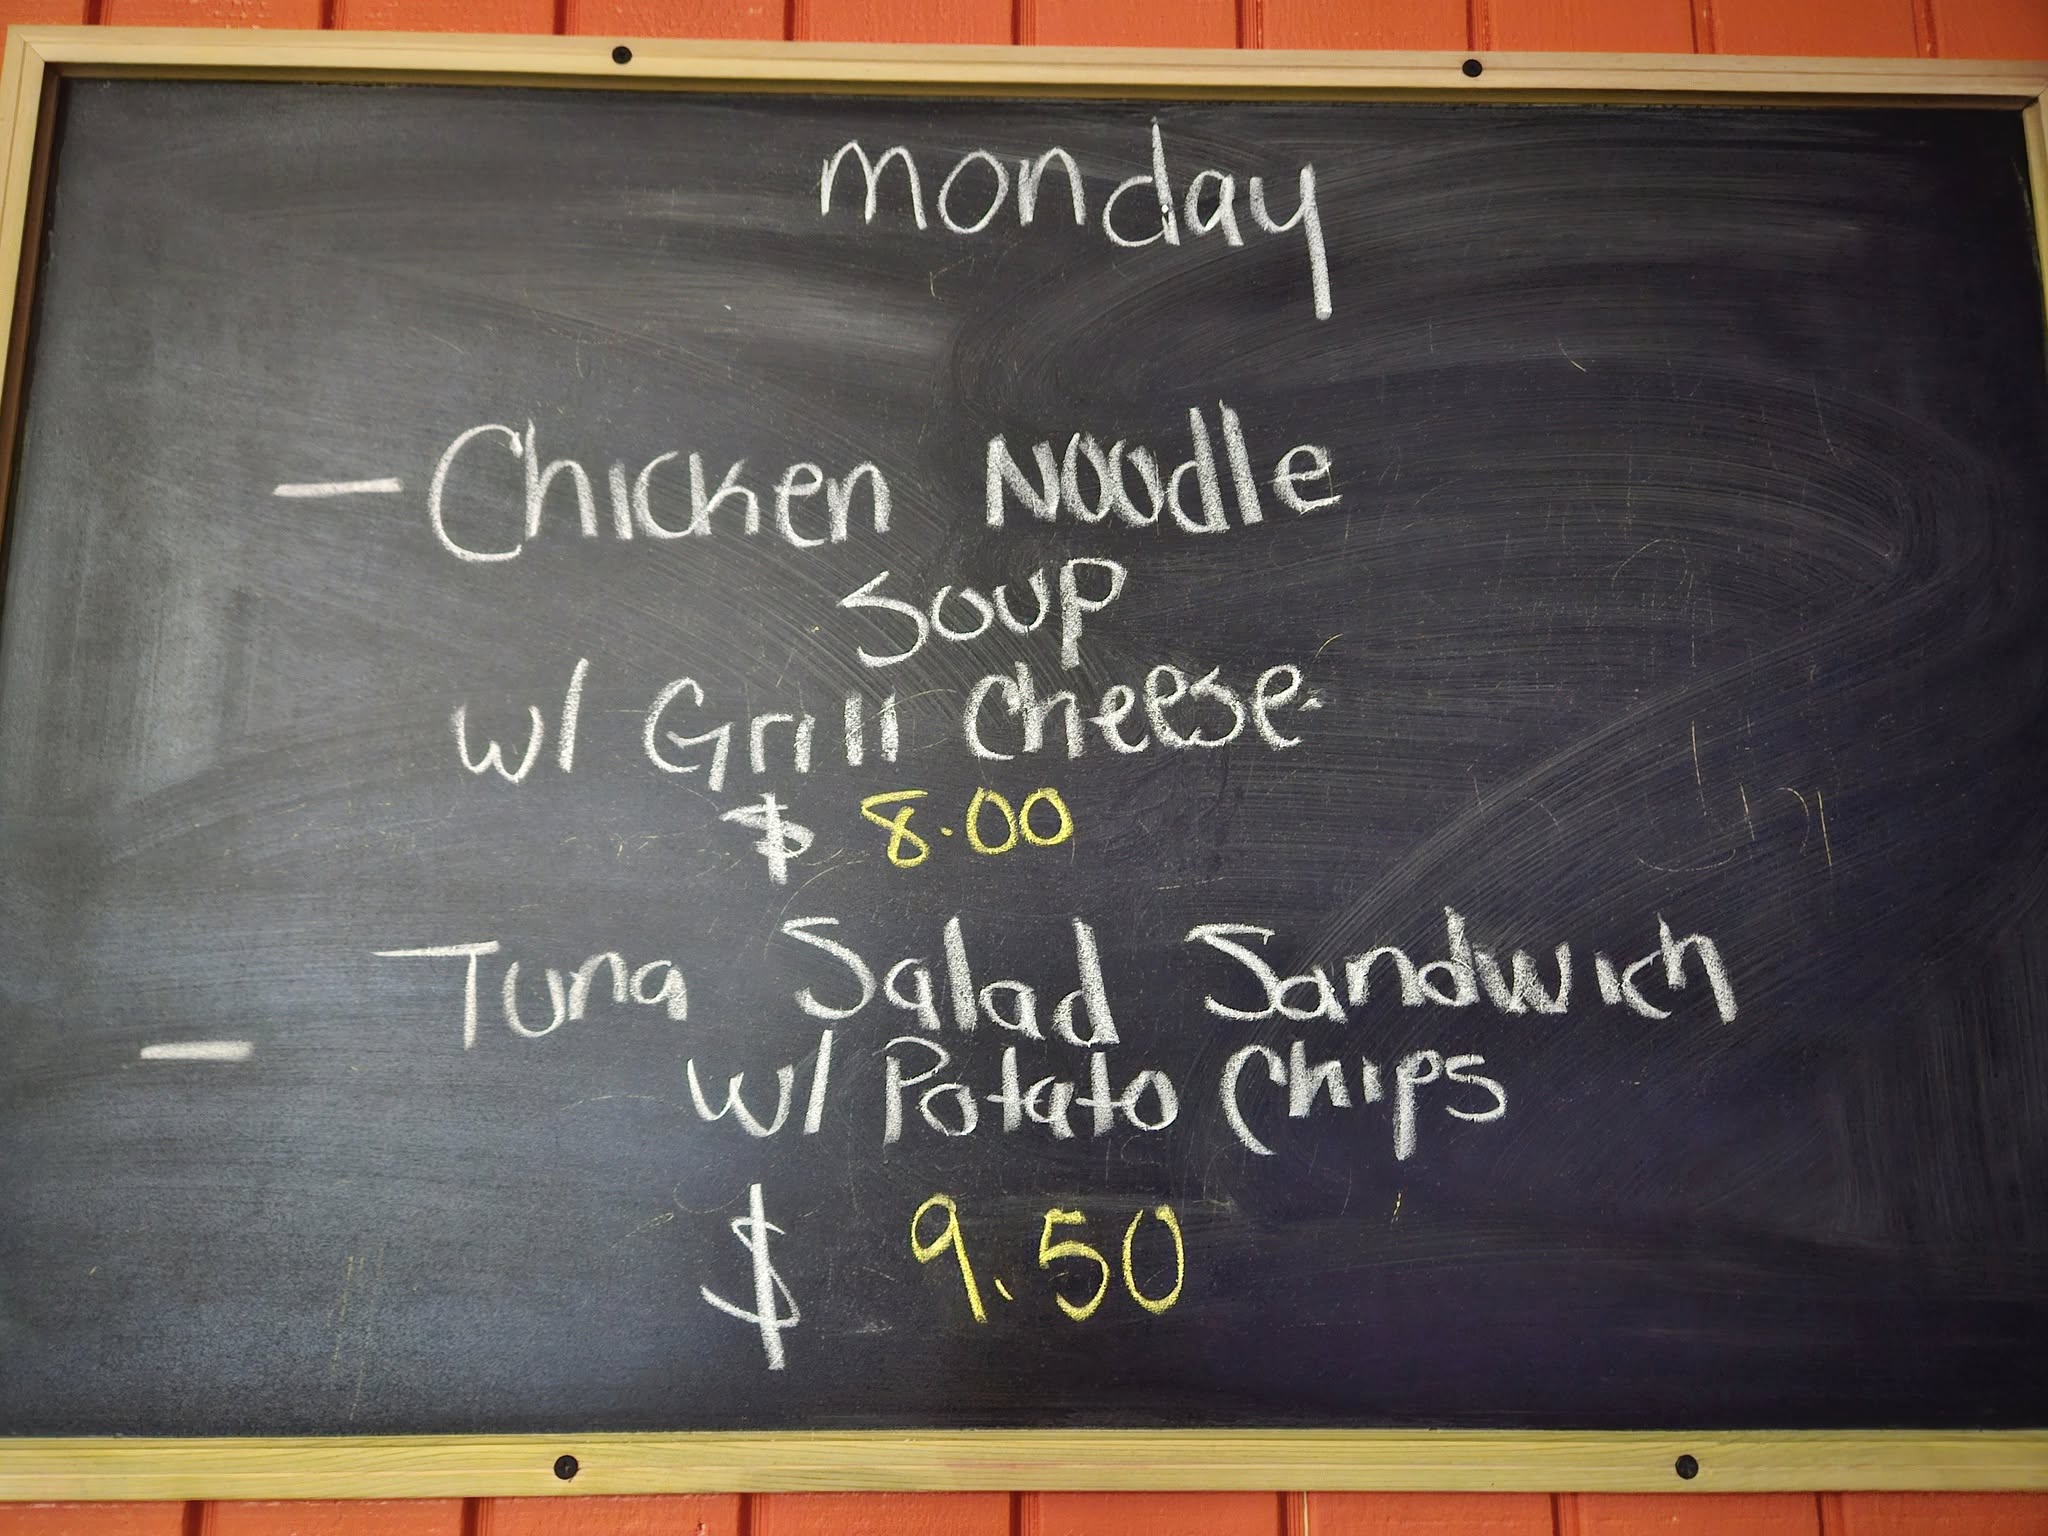 monday
- Chicken Noodle
Soup
w/ Grill Cheese
$ 8.00
- Tuna Salad Sandwich
w/ Potato Chips
$ 9.50